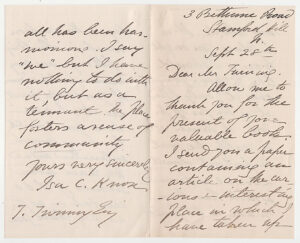 3 Bethune Road
Stamford Hill
N.
Sept 28th
Dear Mr Twining,
Allow me to
thank you for the
present of your
valuable book.
I send you a paper
containing an
article on the cur-
ious & interesting
place in which I
have taken up
all has been har-
monious. I say
"we" but I have
nothing to do with
it, but as a
tennant the place
fosters a sense of
community
Yours very sincerely
Isa C. Knox
T. Twining Esq